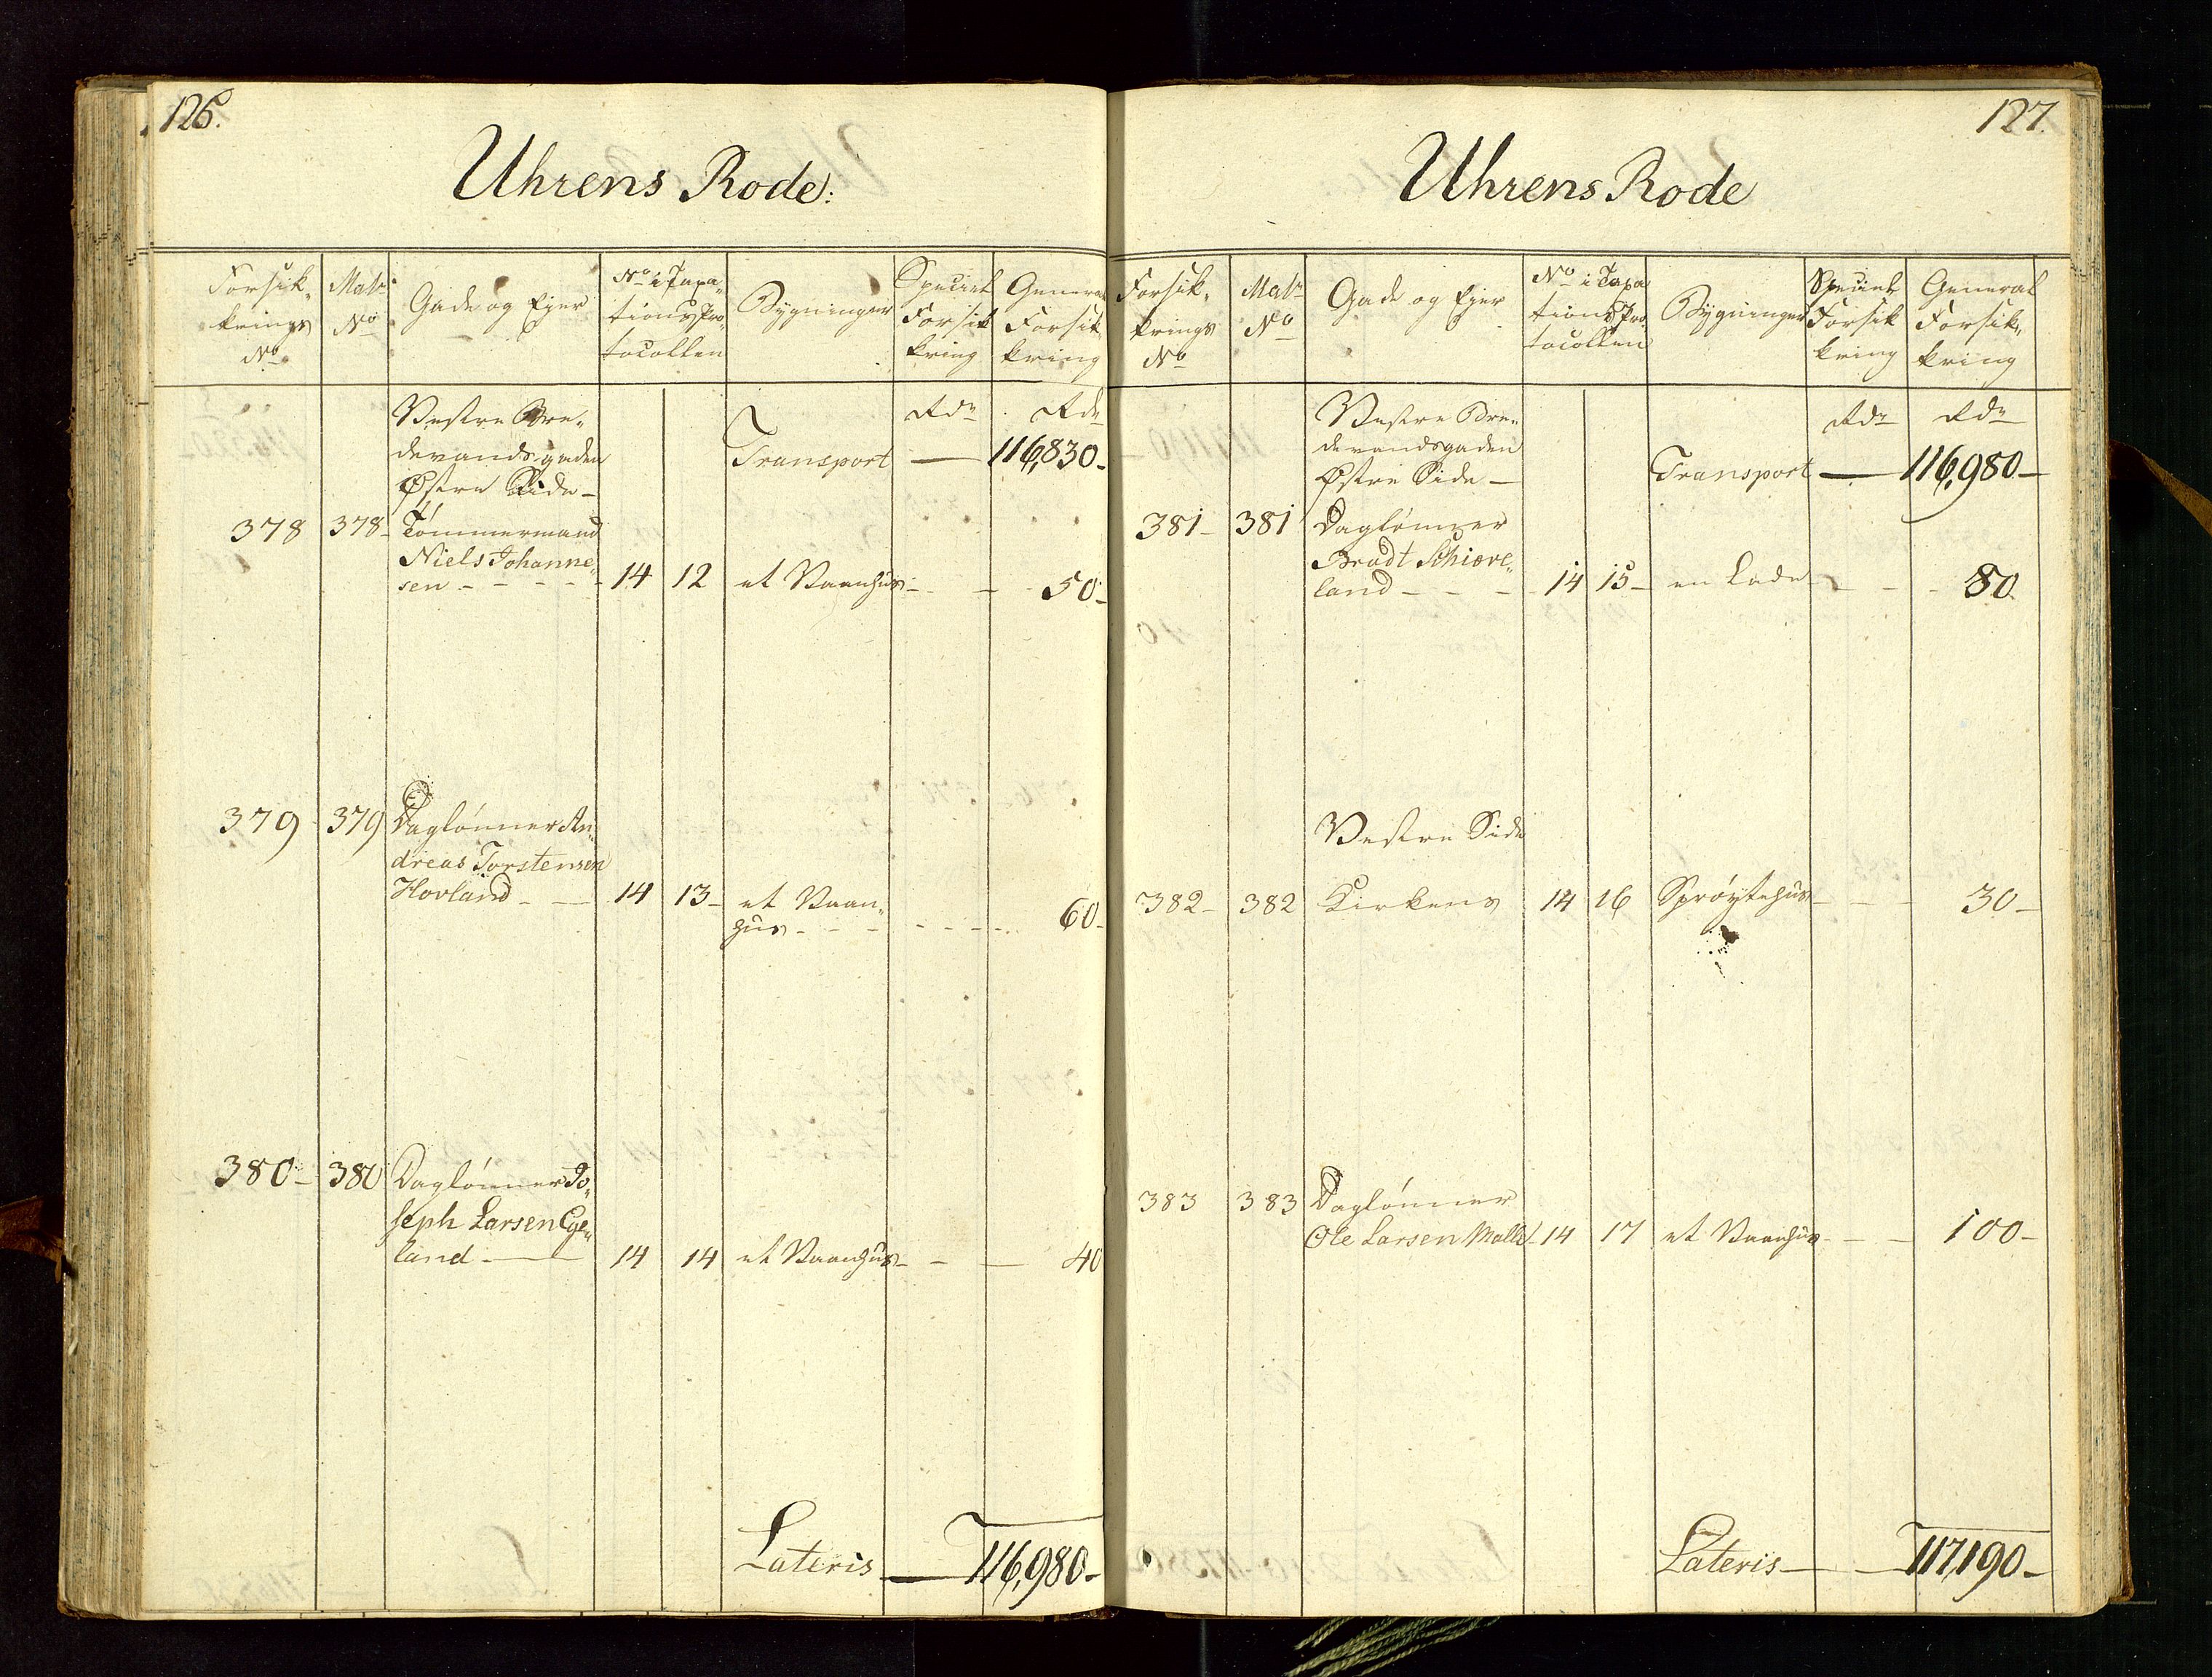 126.
Uhrens Rode:
Forsik-
krings
No
Matr
No
Gade og Ejer
No i Taxa-
tions Pro-
tocollen
Bygninger
Speciel
Forsik
kring
General
Forsik
kring
Vestre Bre-
devandsgaden
Østre Side -
Transport
Rdr
Rdr
116,830-
378 378- Tømmermand
Niels Johanne-
sen - - - - 14 12 et Vaanhus - - 50-
379 379 Daglønner An-
dreas Torstensen
Hovland - - 14 13- et Vaan-
hus - - - - - - - 60-
380- 380 Daglønner Jo-
seph Larsen Ege-
land - 14 14 et Vaanhus - - - 40
Lateris - 116,980-
127.
Uhrens Rode
Forsik-
krings
No
Matr
No
Gade og Ejer
No i Taxa
tions Pro
tocollen
Bygninger
Speciel
Forsik
kring
General
Forsik-
kring
Vestre Bre-
devandsgaden
Østre Side -
Transport
Rdr
Rdr
116,980-
381- 381 Daglønner
Bradt Schiæve-
land - - - 14 15- en Lade - - - 80
Vestre Side
382- 382 Kirkens 14 16 Sprøytehus - - - 30-
383 383 Daglønner
Ole Larsen Malle - 14 17 et Vaanhus - - - 100-
Lateris - 117,190-